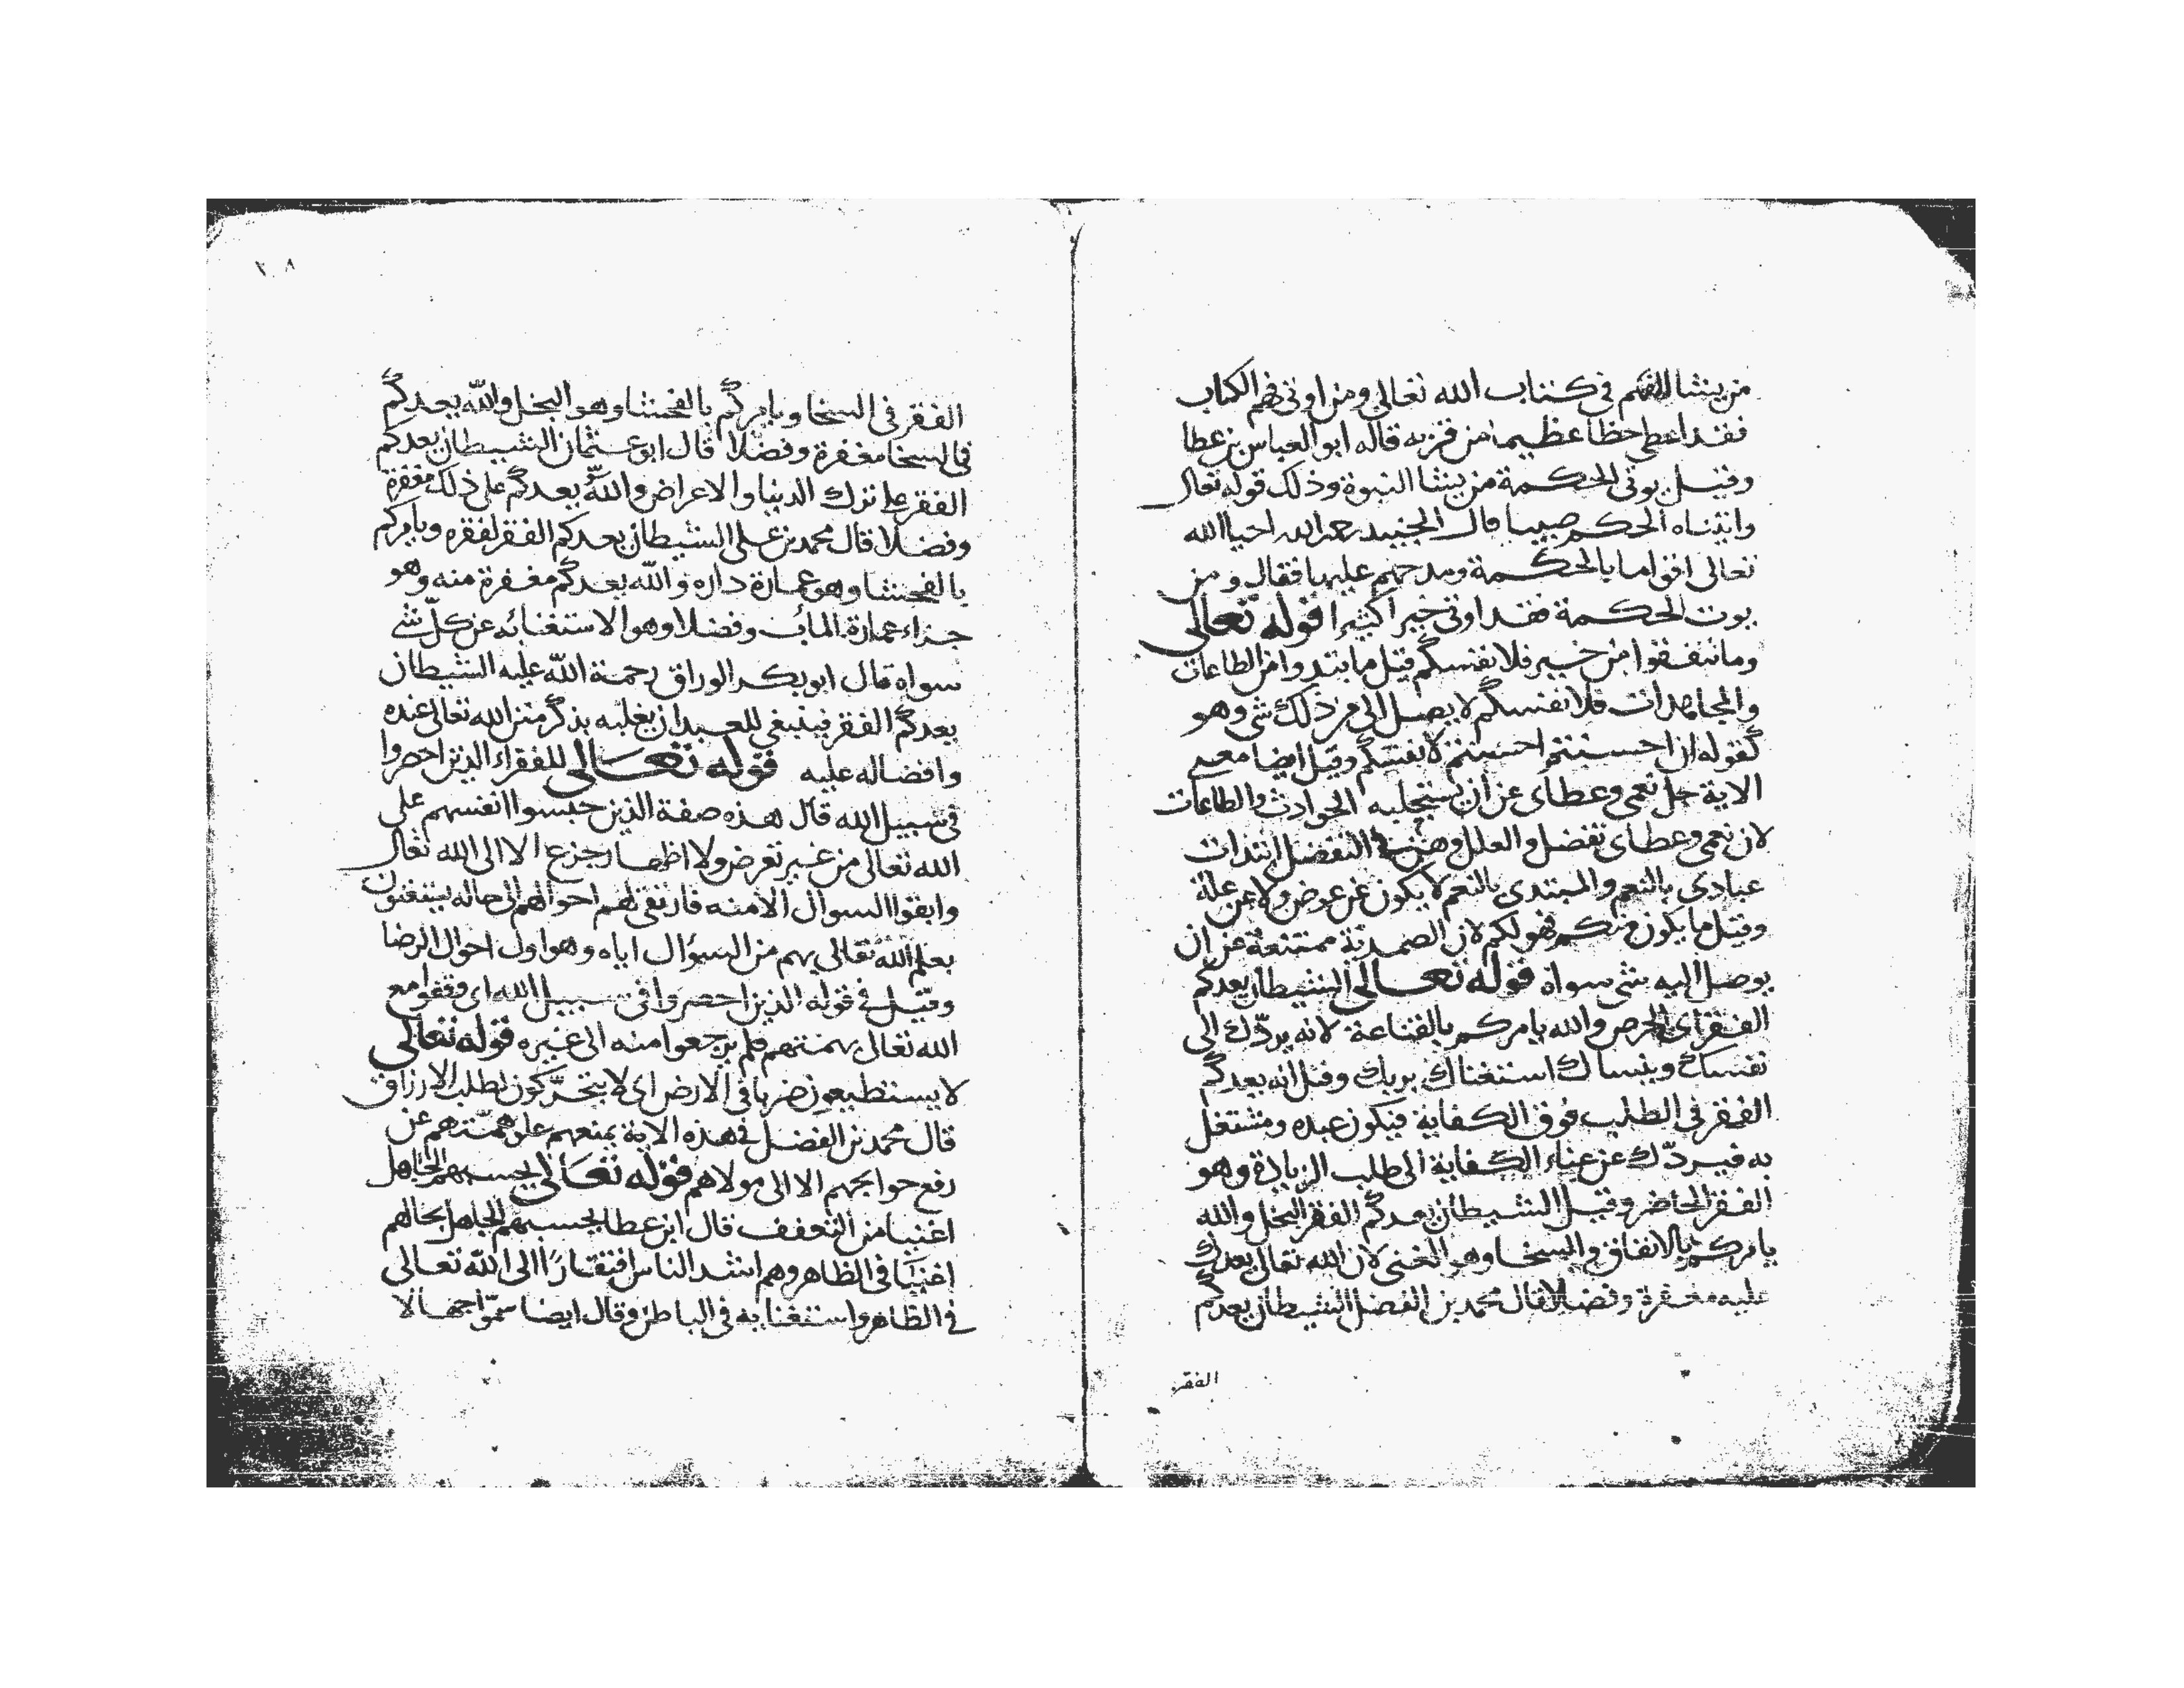 من يشا الفهم في كتاب الله تعالى ومن اوتي فهم الكتاب
فقد اعطى حظا عظيما من قربه قاله ابو العباس بن عطا
وقيل يوتى الحكمة من يشا النبوة وذلك قوله تعالى
واتيناه الحكم صبيا قال الجنيد رحمه الله احيا الله
تعالى اقواما بالحكمة ومدحهم عليها فقال ومن
يوت الحكمة فقد اوتي خيرا كثيرا قوله تعالى
وما تنفقوا من خير فلانفسكم قيل ما يبتدوا من الطاعات
والمجاهدات فلانفسكم لا يصل الي من ذلك شي وهو
كقوله ان احسنتم احسنتم لانفسكم وقيل ايضا معنى
الاية جل نعمى وعطاى عن ان يستجلبه الحوادث والطاعات
لان نعمى وعطاى تفضل والعلل وهن في التفضل ابتدات
عبادى بالنعم والمبتدى بالنعم لا يكون عن عوض ولا عن علة
وقيل ما يكون منكم فهو لكم لان الصمدية ممتنعة عن ان
يوصل اليه شى سواه قوله تعالى الشيطان يعدكم
الفقر اى الحرص والله يامركم بالقناعة لانه يردك الى
نفسك وينساك استغناك بربك وقيل انه يعدكم
الفقر في الطلب فوق الكفاية فيكون عبده ومشتغل
به فيردك عن غناء الكفاية الى طلب الزيادة وهو
الفقر الحاضر وقيل الشيطان يعدكم الفقر البخل والله
يامركم بالانفاق والسخا وهو الغنى لان الله تعالى يعدك
عليه مغفرة وفضلا قال محمد بن الفضل الشيطان يعدكم
الفقر
٢٠٨
الفقر في السخا ويامركم بالفحشا وهو البخل والله يعدكم
في السخا مغفرة وفضلا قال ابو عثمان الشيطان يعدكم
الفقر على ترك الدنيا والاعراض والله يعدكم على ذلك مغفرة
وفضلا قال محمد بن على الشيطان يعدكم الفقر لفقره ويامركم
بالفحشا وهو عمارة داره والله يعدكم مغفرة منه وهو
جزاء عمارة الماب وفضلا وهو الاستغنا به عن كل شى
سواه قال ابو بكر الوراق رحمة الله عليه الشيطان
يعدكم الفقر فينبغى للعبد ان يغلبه بذكر منن الله تعالى عنده
وافضاله عليه قوله تعالى للفقراء الذين احصروا
في سبيل الله قال هذه صفة الذين حبسوا انفسهم على
الله تعالى من غير تعرض ولا اظهار جزع الا الى الله تعالى
وابقوا السوال الا منه فارتقى لهم احوالهم الى حاله يستغنون
بعلم الله تعالى بهم من السؤال اياه وهو اول احوال الرضا
وقيل في قوله الذين احصروا في سبيل الله اى وقفوا مع
الله تعالى بهمتهم فلم يرجعوا منه الى غيره قوله تعالى
لا يستطيعون ضربا في الارض اى لا يتحركون لطلب الارزاق
قال محمد بن الفضل في هذه الاية يمنعهم علو همتهم عن
رفع حوايجهم الا الى مولاهم قوله تعالى يحسبهم الجاهل
اغنيا من التعفف قال ابن عطا يحسبهم الجاهل بحالهم
اغنيا في الظاهر وهم اشد الناس افتقارا الى الله تعالى
في الظاهر واستغنا به في الباطن وقال ايضا سموا جهالا